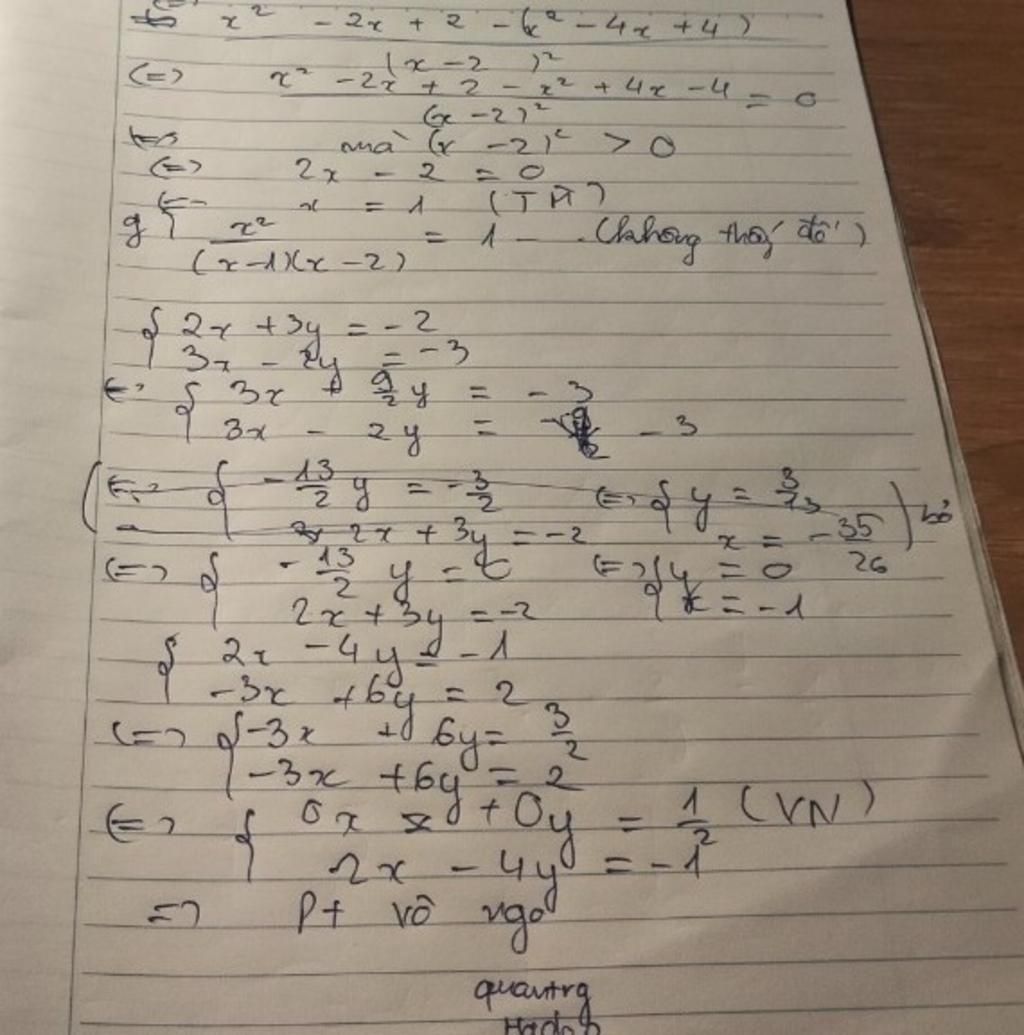 <=> x² - 2x + 2 - (x² - 4x + 4)
(x - 2)²
<=> x² - 2x + 2 - x² + 4x - 4 = 0
(x - 2)²
mà (x - 2)² > 0
<=> 2x - 2 = 0
x = 1 (TM)
g) x² = 1 - . (không thấy đề)
(x-1)(x-2)
{ 2x + 3y = -2
3x - 2y = -3
<=> { 3x + 9/2 y = -3
3x - 2y = -3
<=> { -13/2 y = -3/2 <=> { y = 3/13
2x + 3y = -2 x = -35/26 ) bỏ
<=> { -13/2 y = 0 <=> { y = 0
2x + 3y = -2 x = -1
{ 2x - 4y = -1
-3x + 6y = 2
<=> { -3x + 6y = 3/2
-3x + 6y = 2
<=> { 0x + 0y = 1/2 (VN)
2x - 4y = -1
=> Pt vô ngo